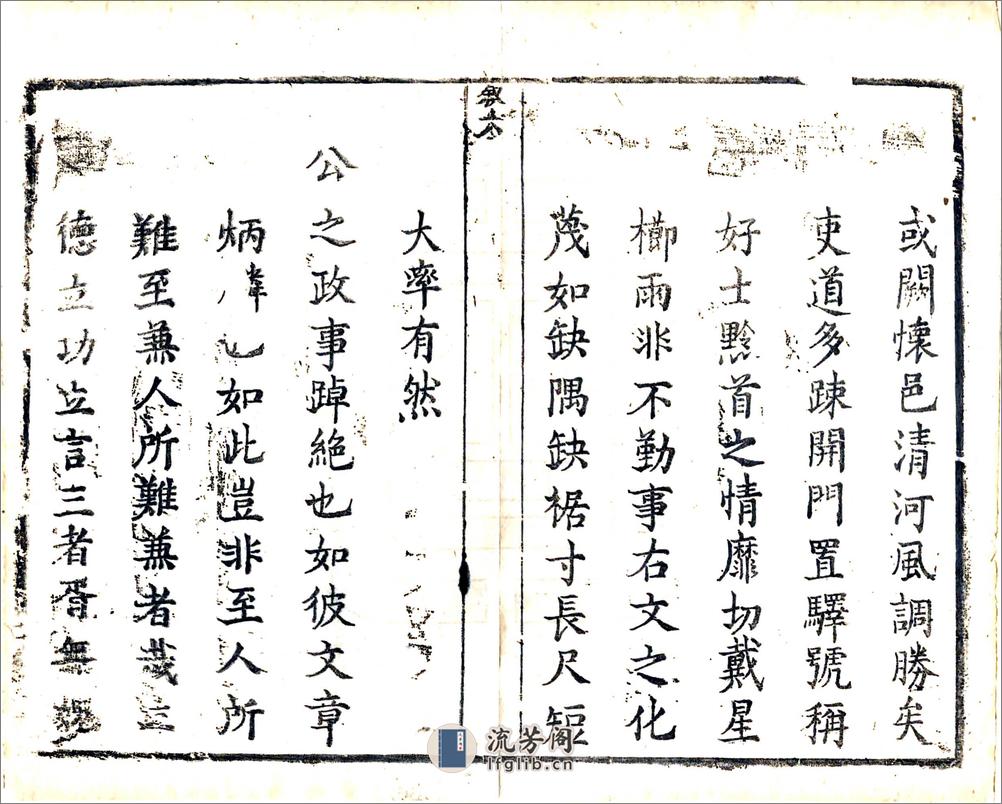 或闕懷邑清河風調勝矣
吏道多踈開門置驛號稱
好士黔首之情靡切戴星
櫛雨非不勤事右文之化
蔑如缺隅缺裾寸長尺短
大率有然
公之政事踔絶也如彼文章
炳燁也如此豈非至人所
難至兼人所難兼者哉立
德立功立言三者胥無
流芳阁
lfglib.cn